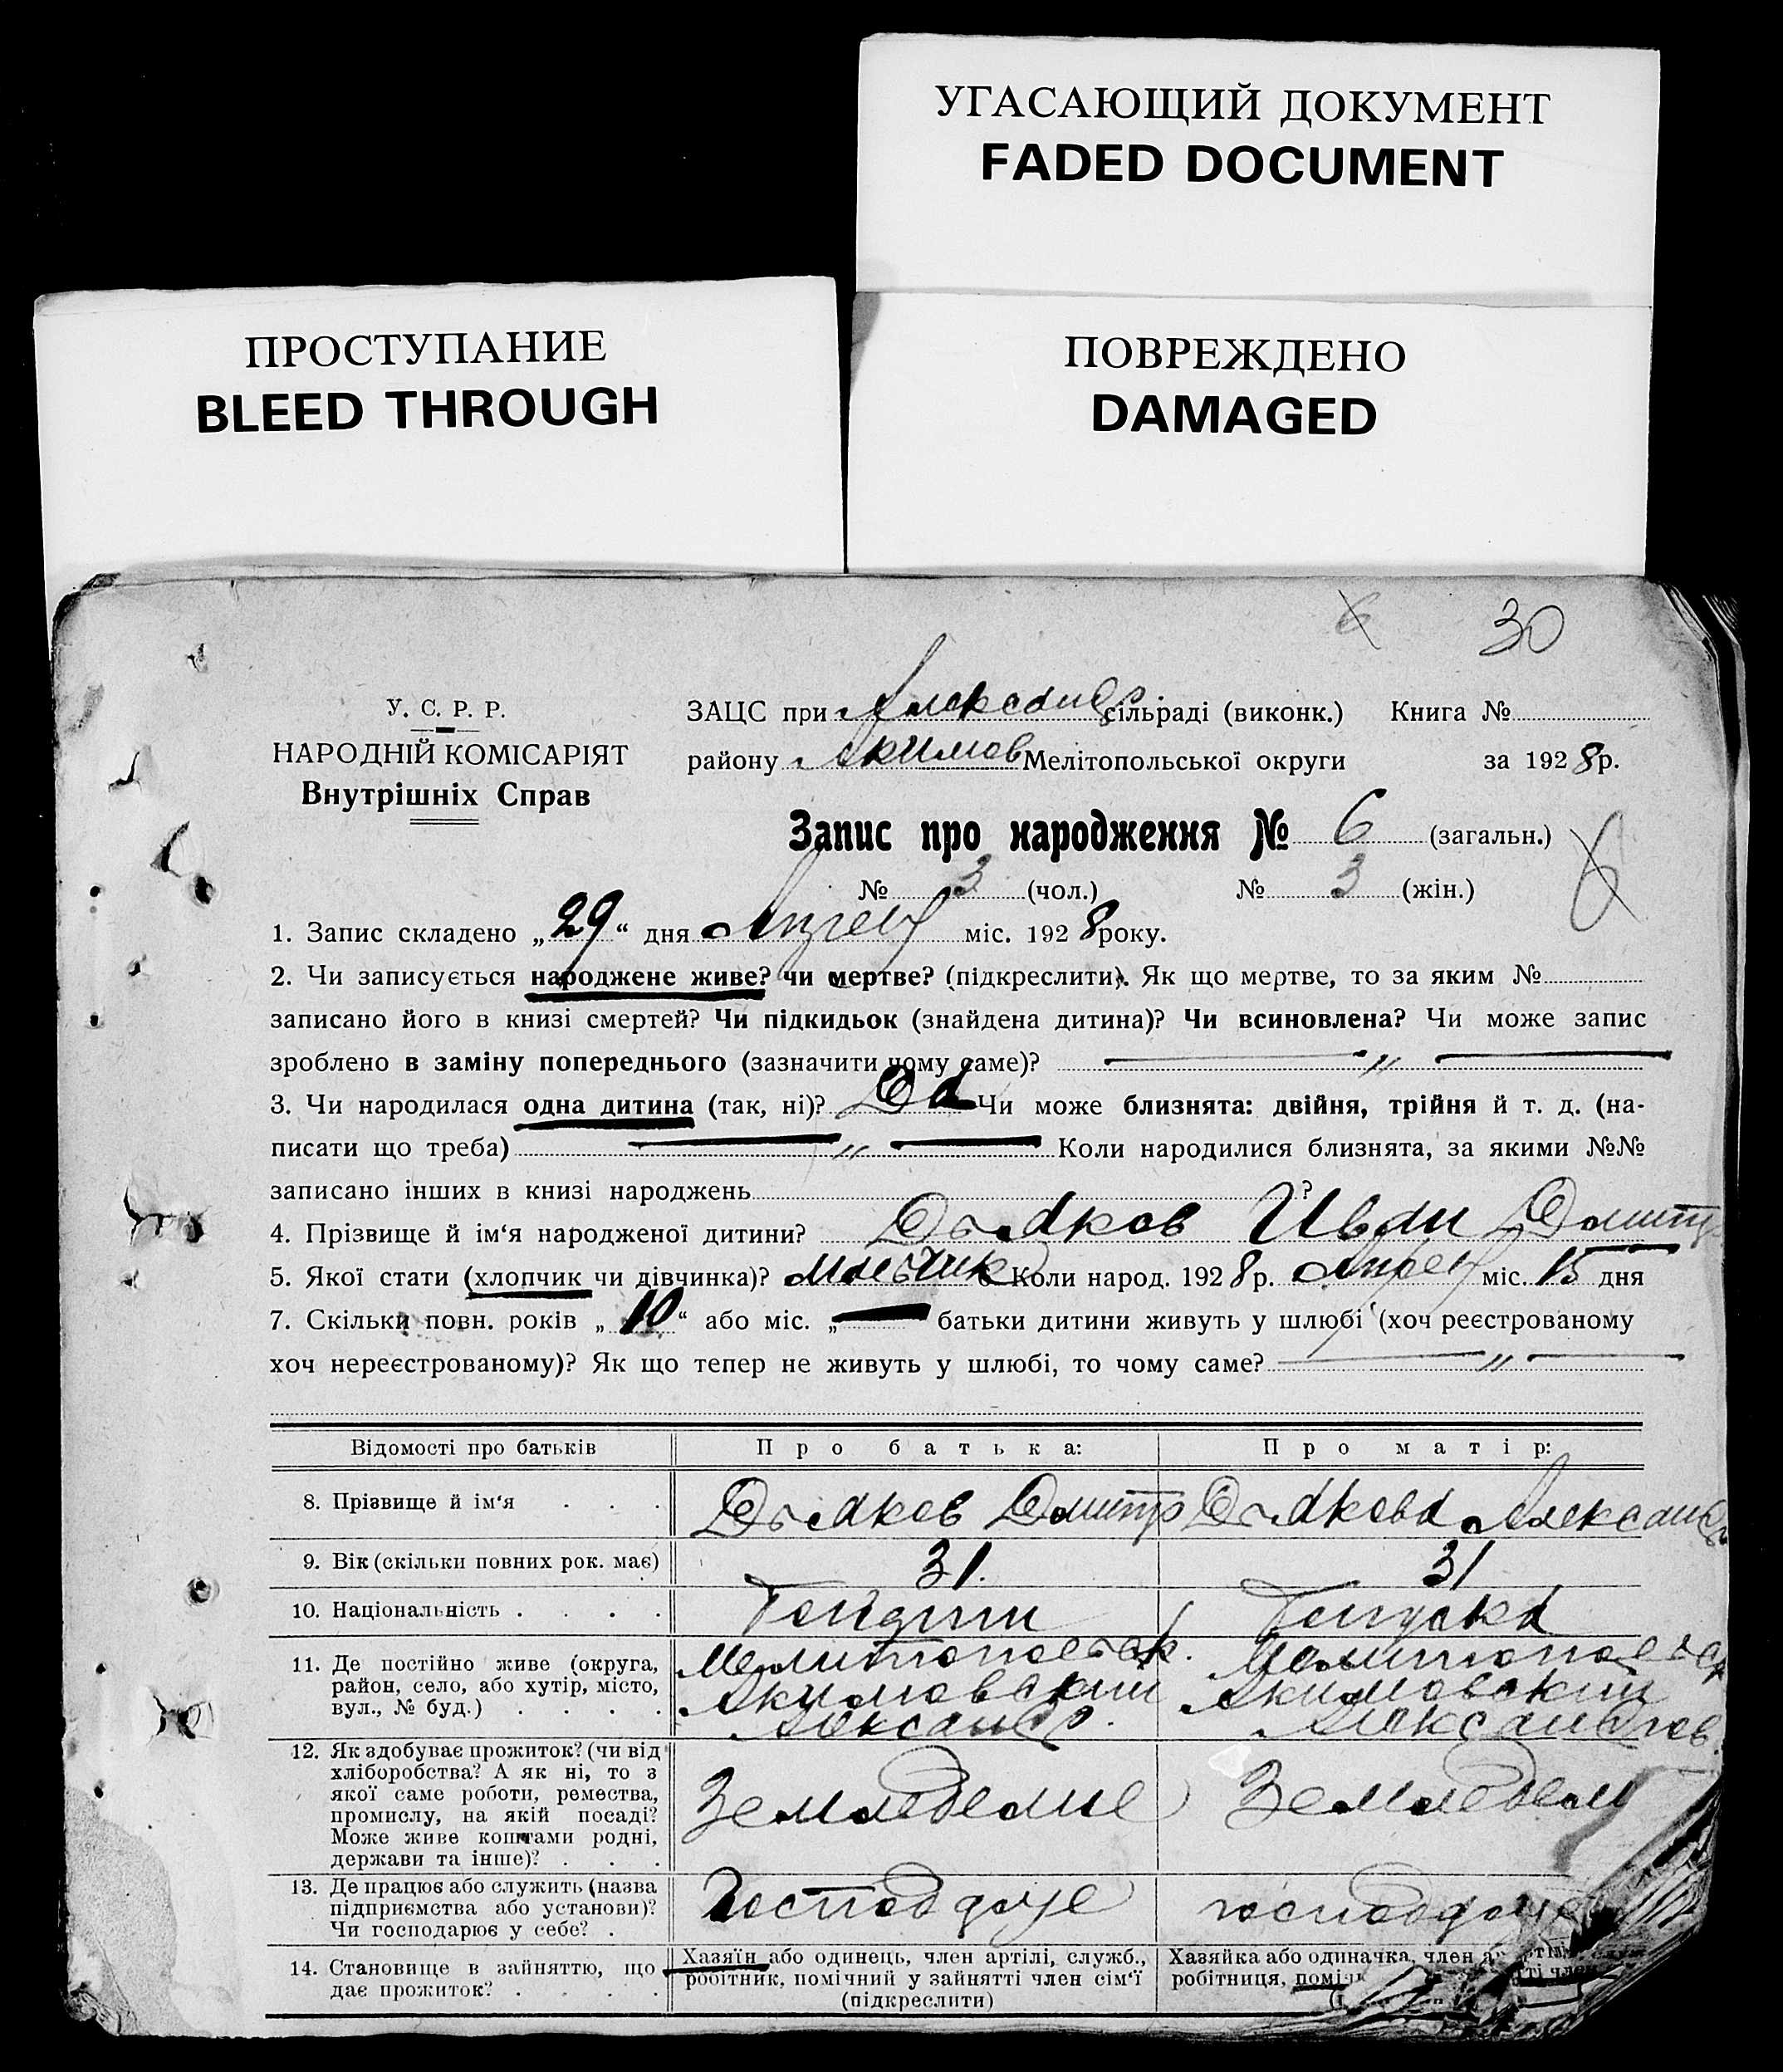 УГАСАЮЩИЙ ДОКУМЕНТ
FADED DOCUMENT
ПРОСТУПАНИЕ
BLEED THROUGH
ПОВРЕЖДЕНО
DAMAGED
6 30
У. С. Р. Р.
НАРОДНІЙ КОМІСАРІЯТ
Внутрішніх Справ
ЗАЦС при Александр. сільраді (виконк.) Книга №
району Акимов Мелітопольської округи за 1928 р.
Запис про народження № 6 (загальн.) 6
№ 3 (чол.) № 3 (жін.)
1. Запис складено „29“ дня міс. 1928 року.
2. Чи записується народжене живе? чи мертве? (підкреслити). Як що мертве, то за яким №
записано його в книзі смертей? Чи підкидьок (знайдена дитина)? Чи всиновлена? Чи може запис
зроблено в заміну попереднього (зазначити чому саме)? — „ —
3. Чи народилася одна дитина (так, ні)? Да Чи може близнята: двійня, трійня й т. д. (на-
писати що треба) — „ — Коли народилися близнята, за якими №№
записано інших в книзі народжень ?
4. Прізвище й ім‘я народженої дитини? Дьяков Иван Дмитр
5. Якої стати (хлопчик чи дівчинка)? Мальчик 6 Коли народ. 1928 р. міс. 15 дня
7. Скільки повн. років „10“ або міс. „— батьки дитини живуть у шлюбі (хоч реєстрованому
хоч нереєстрованому)? Як що тепер не живуть у шлюбі, то чому саме? — „ —
Відомості про батьків Про батька: Про матір:
8. Прізвище й ім‘я . . . Дьяков Дмитр Дьякова Александр
9. Вік (скільки повних рок. має) 31. 31
10. Національність . . . .
11. Де постійно живе (округа, район, село, або хутір, місто, вул., № буд.) . . . .
Мелитопольск. Мелитопольск
Акимовский Акимовский
Александр. Александров.
12. Як здобуває прожиток? (чи від
хліборобства? А як ні, то з
якої саме роботи, ремества,
промислу, на якій посаді?
Може живе коштами родні,
держави та інше)? . . .
Земледелие Земледели
13. Де працює або служить (назва
підприємства або установи)?
Чи господарює у себе? .
Господарує господарує
14. Становище в зайняттю, що
дає прожиток? . . . .
Хазяїн або одинець, член артілі, служб.,
робітник, помічний у зайнятті член сім‘ї
(підкреслити)
Хазяйка або одиначка, член
робітниця,